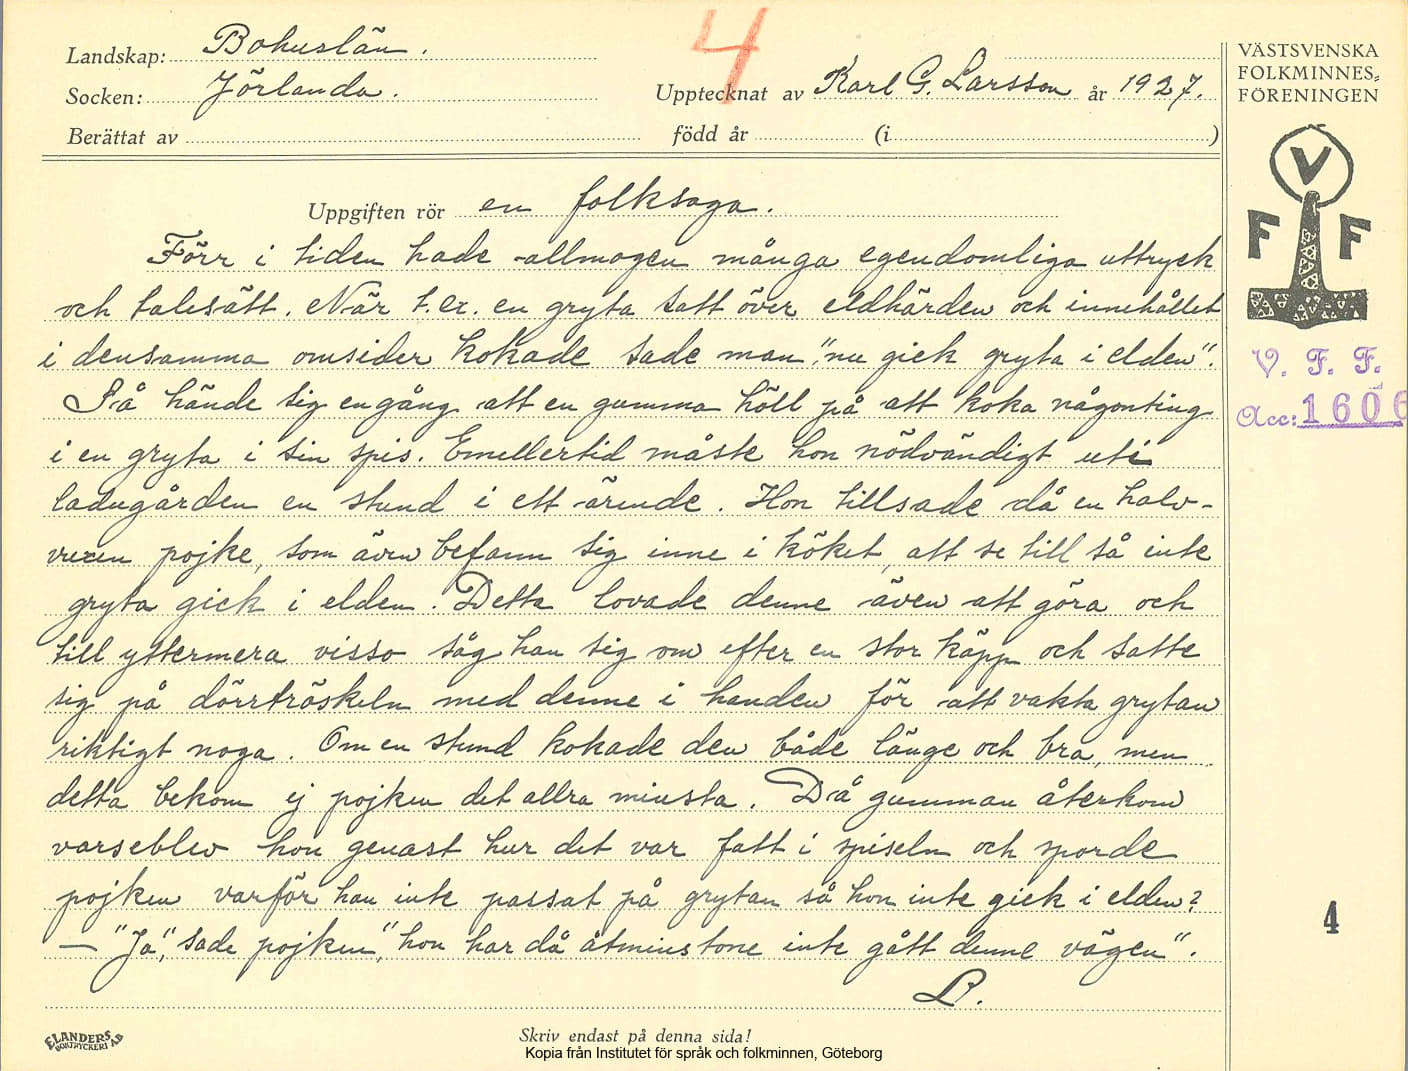 Landskap: Bohuslän.
Socken: Jörlanda.
Upptecknat av Karl G. Larsson år 1927.
Berättat av
född år (i )
4
VÄSTSVENSKA
FOLKMINNES=
FÖRENINGEN
V
F F
V. F. F.
Acc: 1606
Uppgiften rör en folksaga.
Förr i tiden hade allmogen många egendomliga uttryck
och talesätt. När t.ex. en gryta satt över eldhärden och innehållet
i densamma omsider kokade sade man "nu gick gryta i elden".
Så hände sig engång att en gumma höll på att koka någonting
i en gryta i sin spis. Emellertid måste hon nödvändigt uti
ladugården en stund i ett ärende. Hon tillsade då en halv-
vuxen pojke, som även befann sig inne i köket, att se till så inte
gryta gick i elden. Detta lovade denne även att göra och
till yttermera visso såg han sig om efter en stor käpp och satte
sig på dörrtröskeln med denne i handen för att vakta grytan
riktigt noga. Om en stund kokade den både länge och bra, men
detta bekom ej pojken det allra minsta. Då gumman återkom
varseblev hon genast hur det var fatt i spiseln och sporde
pojken varför han inte passat på grytan så hon inte gick i elden?
— "Ja", sade pojken, "hon har då åtminstone inte gått denne vägen".
L.
4
ELANDERS
BOKTRYCKERI AB
Skriv endast på denna sida!
Kopia från Institutet för språk och folkminnen, Göteborg